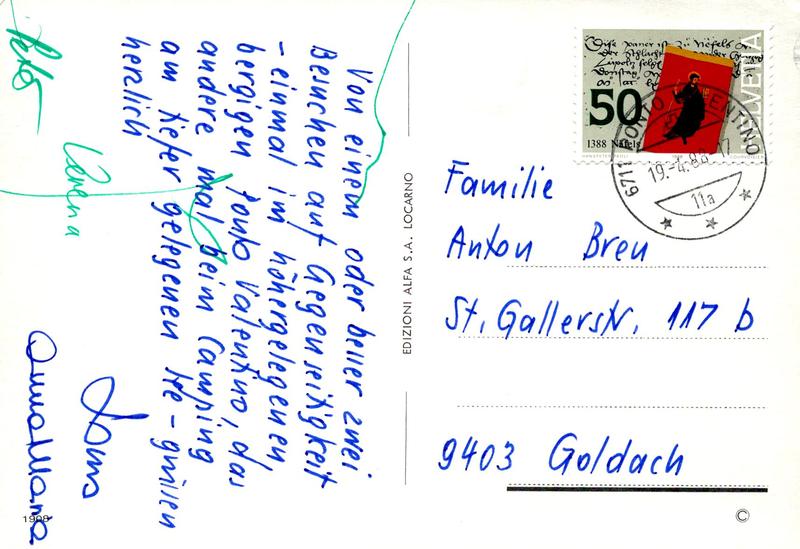 Von einem oder besser zwei
Besuchen auf Gegenseitigkeit
- einmal im höhergelegenen,
bergigen Ponto Valentino, das
andere mal beim Camping
am tiefer gelegenen See - grüssen
herzlich
Peter
Verena
Anna Maria
EDIZIONI ALFA S.A., LOCARNO
50
1388 Näfels
HELVETIA
6711 PONTO VALENTINO
19.-4.88-17
11a
Familie
Anton Breu
St. Gallerstr. 117 b
9403 Goldach
©